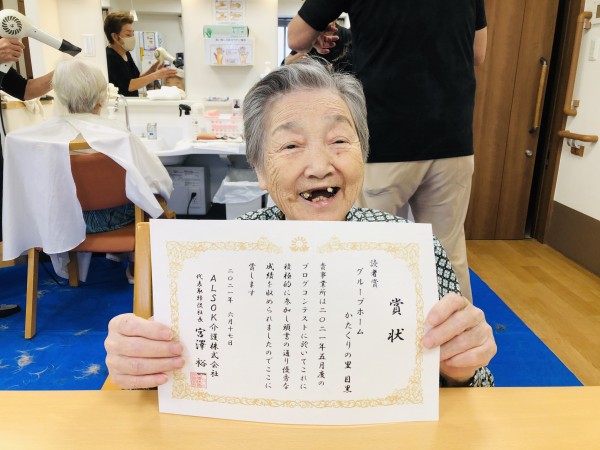 賞状
読者賞
グループホーム
かたくりの里 目黒
貴事業所は二〇二一年五月度の
ブログコンテストに於いてこれに
積極的に参加し頭書の通り優秀な
成績を収められましたのでここに
賞します
二〇二一年 六月十七日
ALSOK介護株式会社
代表取締役社長 宮澤 裕